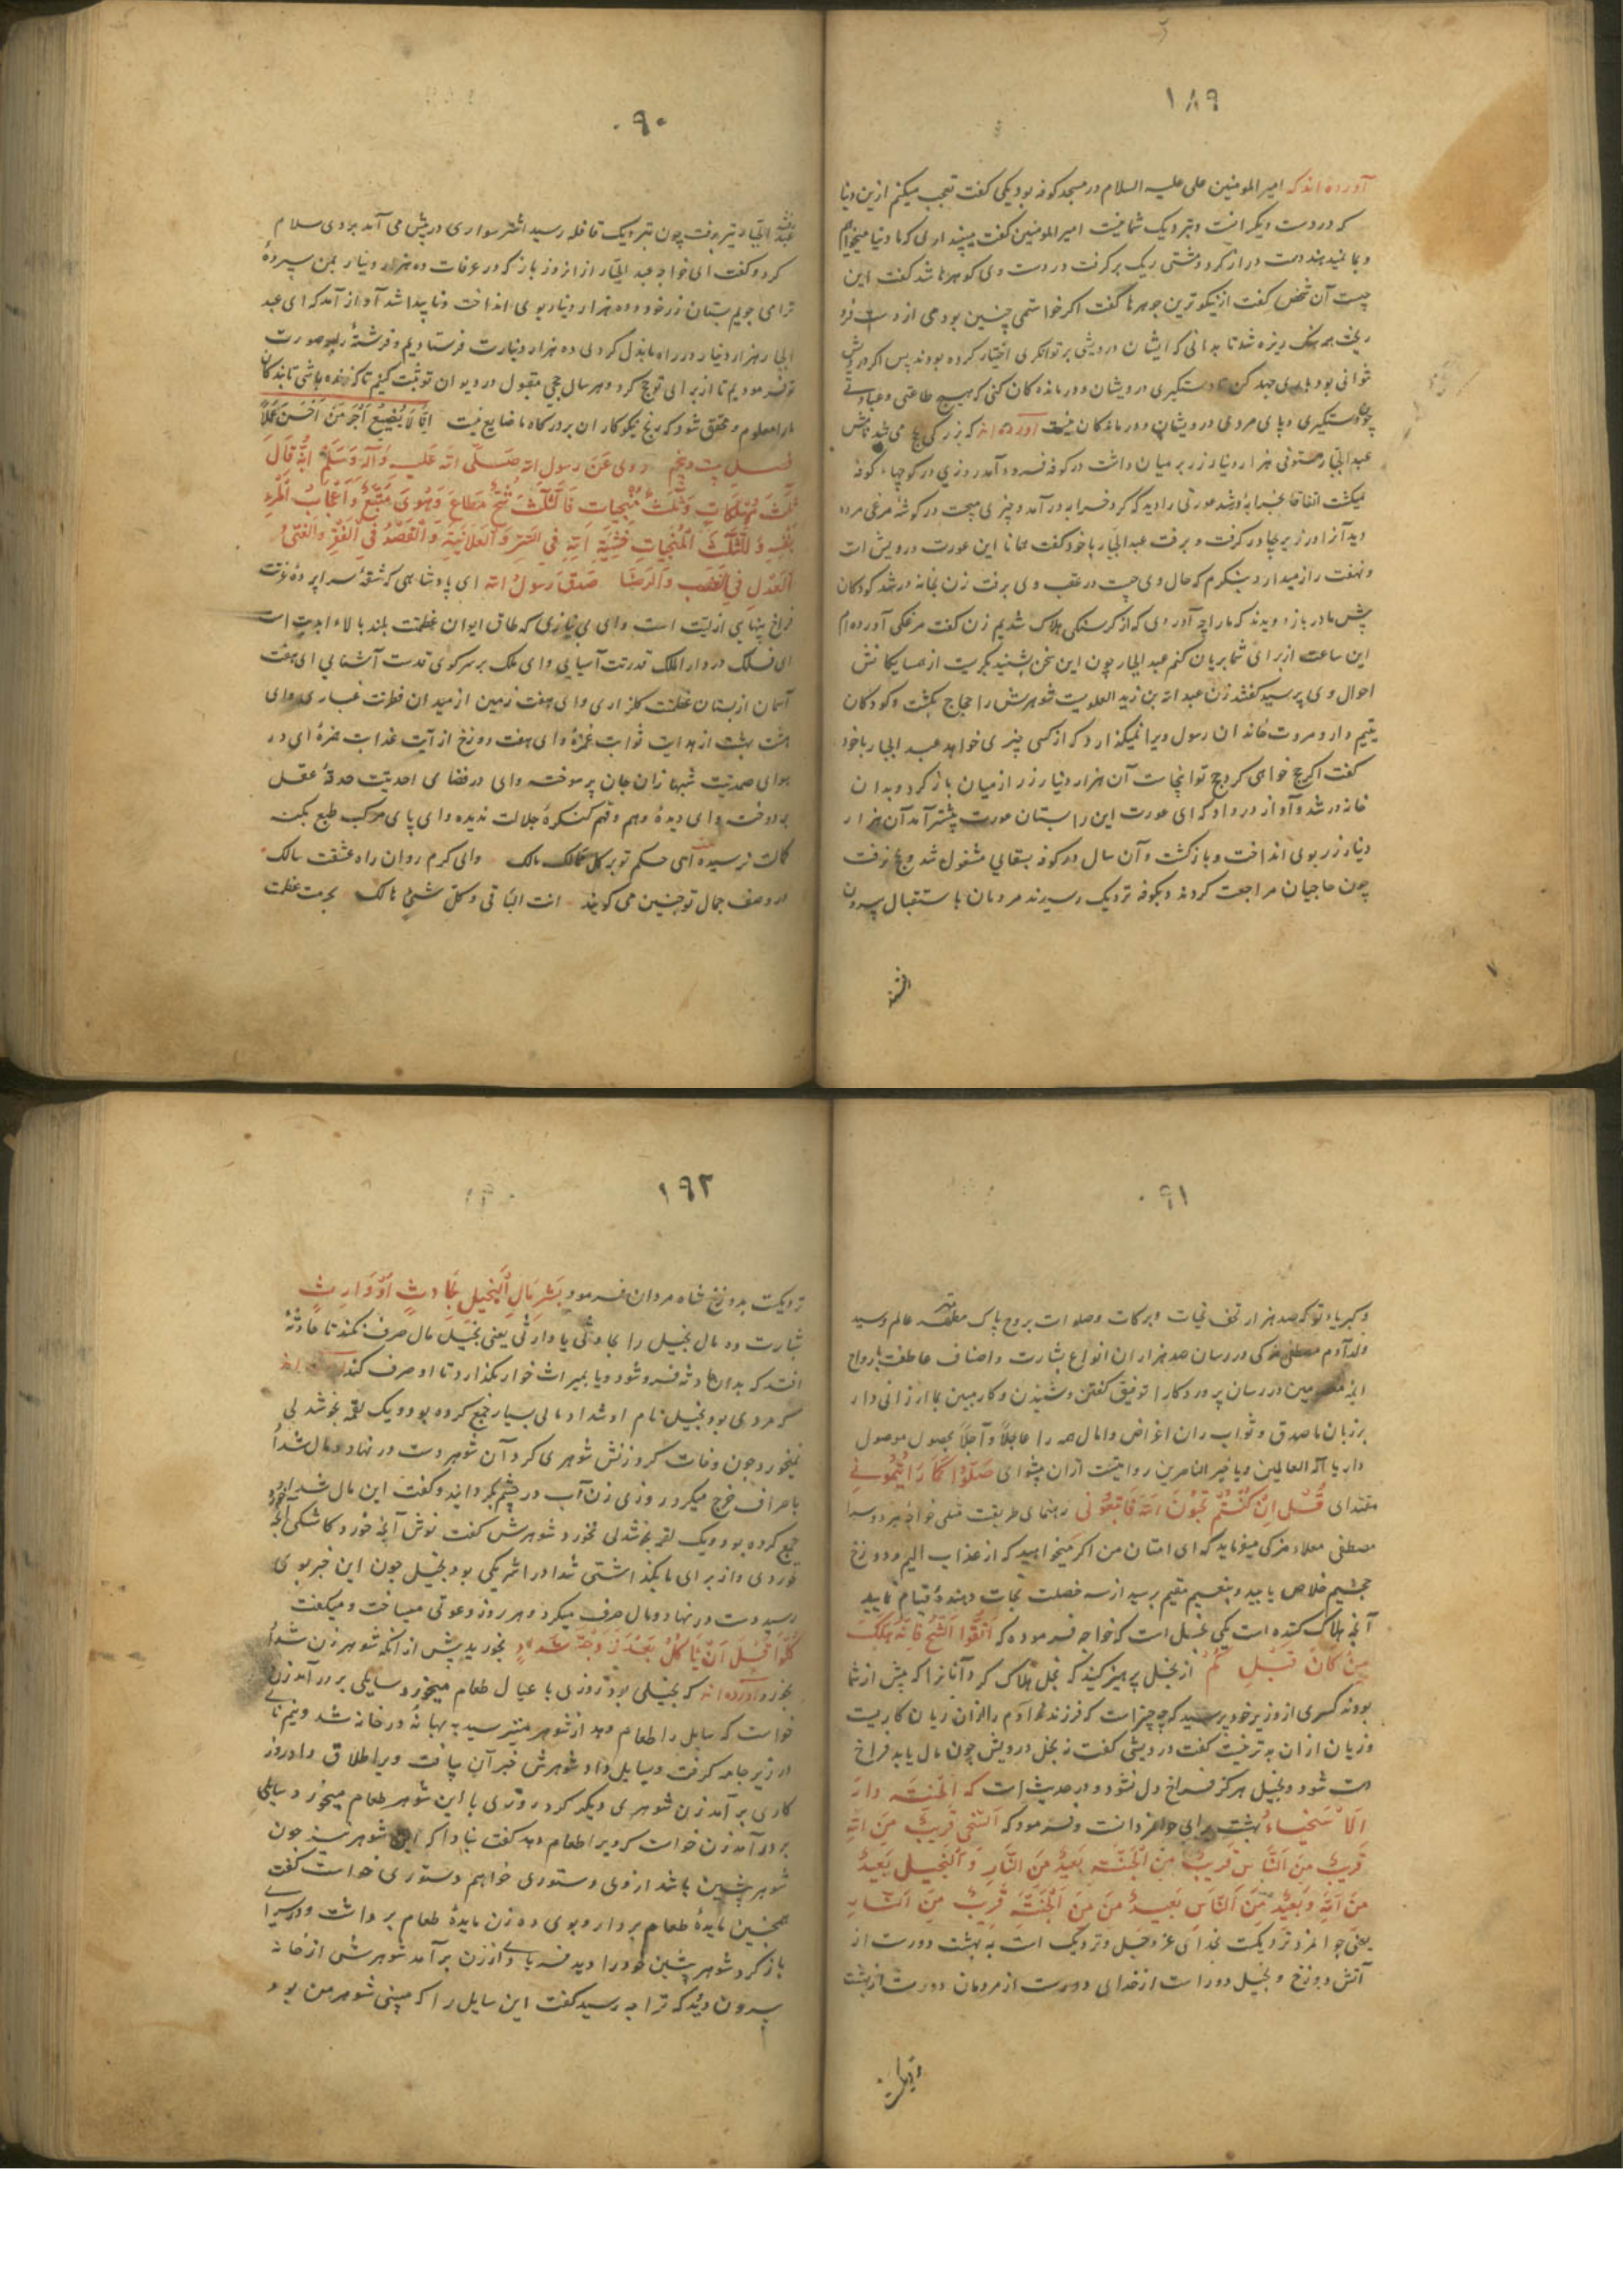 ١٨٩
آورده اند که امیرالمومنین علی علیه السلام در مسجد کوفه بود یکی گفت تعجب میکنم ازین دنیا
که در دست دیگرانست و بنزدیک شما نیست امیرالمومنین گفت می پندارلی که ما دنیا میخواهیم
و بما نمیدهند دست دراز کرد و مشتی ریک بر گرفت در دست وی گوهرها شد گفت این
چیست آن شخص گفت از نیکوترین جوهرها گفت اگر خواستمی چنین بودمی از دست فرو
ریخت همه سنک ریزه شد تا بدانی که ایشان درویشی بر توانگری اختیار کرده بودند پس اگر درویش
توانی بود باری جهد کن تا دستگیری درویشان و درماندگان کنی که هیچ طاعتی و عبادتی
چون دستگیری و پای مردی درویشان و درماندگان نیست آورده اند که بزرگی بحج می شد نامش
عبدالجبار مستوفی هزار دینار زر بر میان داشت در کوفه فرود آمد روزی در کوچهاء کوفه
میکشت اتفاقا بخرابه در شد عورتی را دید که کرد خرابه در آمد و چیزی میجست در گوشه مرغی مرده
دید آنرا در زیر چادر گرفت و برفت عبدالجبار با خود گفت همانا این عورت درویش است
و نهفت راز میدارد بنگرم که حال وی چیست در عقب وی برفت زن بخانه در شد کودکان
پیش مادر باز دویدند که ما را چه آوردی که از گرسنگی هلاک شدیم زن گفت مرغکی آورده ام
این ساعت از برای شما بریان کنم عبدالجبار چون این سخن بشنید بگریست از همسایکانش
احوال وی پرسید گفتند زن عبدالله بن زید العلویست شوهرش را حجاج بکشت و کودکان
یتیم دارد و مروت خاندان رسول ویرا نمیگذارد که از کسی چیزی خواهد عبدالجبار با خود
گفت اگر حج خواهی کرد حج تو اینجاست آن هزار دینار زر از میان باز کرد و بدان
خانه در شد و آواز در داد که ای عورت این را بستان عورت پیشتر آمد آن هزار
دینار زر بوی انداخت و بازگشت و آن سال در کوفه بسقایی مشغول شد و بحج نرفت
چون حاجیان مراجعت کردند و بکوفه نزدیک رسیدند مردمان باستقبال بیرون
٩٠
عبدالجبار نیز برفت چون نزدیک قافله رسید اشتر سواری در پیش می آمد بروی سلام
کرد و گفت ای خواجه عبدالجبار از آن روز باز که در عرفات ده هزار دینار بمن سپردۀ
ترا می جویم بستان زر خود و ده هزار دینار بوی انداخت و ناپیدا شد آواز آمد که ای عبد
الجبار هزار دینار در راه ما بذل کردلی ده هزار دینارت فرستادیم و فرشتۀ را بر صورت
تو فرمودیم تا از برای تو حج کرد و هر سال حجی مقبول در دیوان تو ثبت کنیم تا که زنده باشی تا بندگان
ما را معلوم و محقق شود که رنج نیکوکاران بر درگاه ما ضایع نیست اِنّا لا نُضیعُ اَجرَ مَن اَحسَنَ عَمَلاً
فصل بیست و پنجم روی عَن رسول الله صَلّی الله عَلیه وَآله وَسَلّم اِنّهُ قالَ
ثَلٰثَ مُهلِکاتٍ وَثَلٰثَ مُنجیاتٍ فَالثَّلٰثَ شُحٌّ مُطاعٌ وَهَویً مُتَّبَعٌ وَاَعجابُ المَرءِ
بِنَفسِه وَالثَّلٰثَ المُنجیاتِ خَشیَةِ الله فی السِّرِّ وَالعَلانِیَةِ وَالقَصدُ فی الفَقرِ وَالغِنیٰ
اَلعَدلِ فی الغَضَبِ وَالرِّضا صَدَقَ رَسولُ الله ای پادشاهی که شقۀ سراپرده عزت
فراخ پهنای ازلیت است وای بی نیازی که طاق ایوان عظمتت بلند بالاء ابدیت است
ای فلک در دار الملک قدرتت آسیایی وای ملک بر سر کوی قدست آشنایی ای هفت
آسمان از بستان عظمتت کلزاری وای هفت زمین از میدان فطرتت غباری وای
هشت بهشت از هدایت ثوابت غمزۀ وای هفت دوزخ از آیت عذابت ای در
هوای صمدیت شهبازان جان پر سوخته وای در فضای احدیت حدقۀ عقل
بر دوخت وای دیدۀ وهم و فهم کنگرۀ جلالت ندیده وای پای مرکب طبع بکنه
کمالت نرسیده ای حکم تو بر کل ممالک مالک وای کرم روان راه عشقت سالک
در وصف جمال تو چنین می گویند انت الباقی و کل شیئ هالک بحرمت عظمت
٩١
و کبریاء تو که صد هزار تحف تحیات و برکات و صلوات بروح پاک مطهر عالم و سید
ولد آدم مصطفی مزکی در رسان صد هزاران انواع بشارت و اصناف عاطفت بارواح
ائمه معصومین در رسان پروردگارا توفیق گفتن و شنیدن و کار بدین بما ارزانی دار
بر زبان ما صدق و ثواب ران اغراض و امال همه را عاجلاً و آجلاً بحصول موصول
دار یا اله العالمین و یا خیر الناصرین روایتست از آن پیشوای صَلّوا کَما رَأَیتُمونی
مقتدای قُل اِن کُنتُم تُحِبّونَ الله فَاتَّبِعونی رهنمای طریقت خواجه هر دو سرا
مصطفی معلاء مزکی میفرماید که ای امتان من اگر میخواهید که از عذاب الیم و دوزخ
جحیم خلاص یابید و بنعیم مقیم برسید از سه خصلت نجات دهنده قیام نمایید
آنچه هلاک کننده است یکی بخل است که خواجه فرموده که اتَّقوا الشُّحَّ فَاِنَّهُ هلکت
مَن کانَ قَبلِکُم از بخل پرهیز کنید که بخل هلاک کرد آنانرا که پیش از شما
بودند کسری از وزیر خود پرسید که چه چیز است که فرزند آدم را از آن زیان کاریست
و زیان از آن بدتر نیست گفت درویشی گفت نه بخل درویش چون مال یابد فراخ
دست شود و بخیل هرگز فراخ دل نشود و در حدیث است که الجَنَّة دارَ
الاَسخیاءُ بهشت سرای جوانمردانست و فرمود که اَلسَّخی قَریبٌ مِنَ الله
قَریبٌ مِنَ النّاسِ قَریبٌ مِنَ الجَنَّة بَعیدٌ مِنَ النّارِ وَالبَخیل بَعیدٌ
مِنَ الله وَبَعیدٌ مِنَ النّاسِ بَعیدٌ مِنَ مِنَ الجَنَّة قَریبٌ مِنَ النّارِ
یعنی جوانمرد نزدیکست بخدای عز و جل و نزدیک است به بهشت دورست از
آتش دوزخ و بخیل دور است از خدای دورست از مردمان دورست از بهشت
١٩٢
نزدیکست بدوزخ شاه مردان فرمود بَشِّر مالِ البَخیلِ بِحادِثٍ اَو وارِثٍ
بشارت ده مال بخیل را بحادثی یا وارثی یعنی بخیل مال صرف نکند تا حادثه
افتد که بدان حادثه فرو شود و یا بمیراث خوار بگذارد تا او صرف کند آورده اند
که مردی بود بخیل نام او شداد مالی بسیار جمع کرده بود و یک لقمه بخوشدلی
نمیخورد چون وفات کرد زنش شوهری کرد آن شوهر دست در نهاد و مال شداد
باصراف خرج میکرد روزی زن آب در چشم بگردانید و گفت این مال شداد
جمع کرده بود و یک لقمه بخوشدلی نخورد شوهرش گفت نوش آنچه خورد کاشکی آنچه
خوردی و از برای ما بگذاشتی شداد را شریکی بود بخیل چون این خبر بوی
رسید دست در نهاد و مال صرف میکرد و هر روز دعوتی میساخت و میگفت
کُلوا قَبلَ اَن یَأکُلُ بَعدَکُ زَوجُ شداد بخورید پیش از آنکه شوهر زن شداد
بخورد آورده اند که بخیلی بود روزی با عیال طعام میخورد سایلی بر در آمد زن
خواست که سایل را طعام دهد از شوهر میترسید به بهانه در خانه شد و نیم نانی
در زیر جامه گرفت و بسایل داد شوهرش خبر آن یافت ویرا طلاق داد روز
کاری بر آمد زن شوهری دیگر کرد روزی با این شوهر طعام میخورد سایلی
بر در آمد زن خواست که ویرا طعام دهد گفت نبادا که این شوهر نیز چون
شوهر پیشین باشد از وی دستوری خواهم دستوری خواست گفت
همچنین مایدۀ طعام بردار و بوی ده زن مایدۀ طعام برداشت و در سرای
باز کرد شوهر پیشین خود را دید فریادی از زن برآمد شوهرش از خانه
بیرون دوید که ترا چه رسید گفت این سایل را که می بینی شوهر من بود